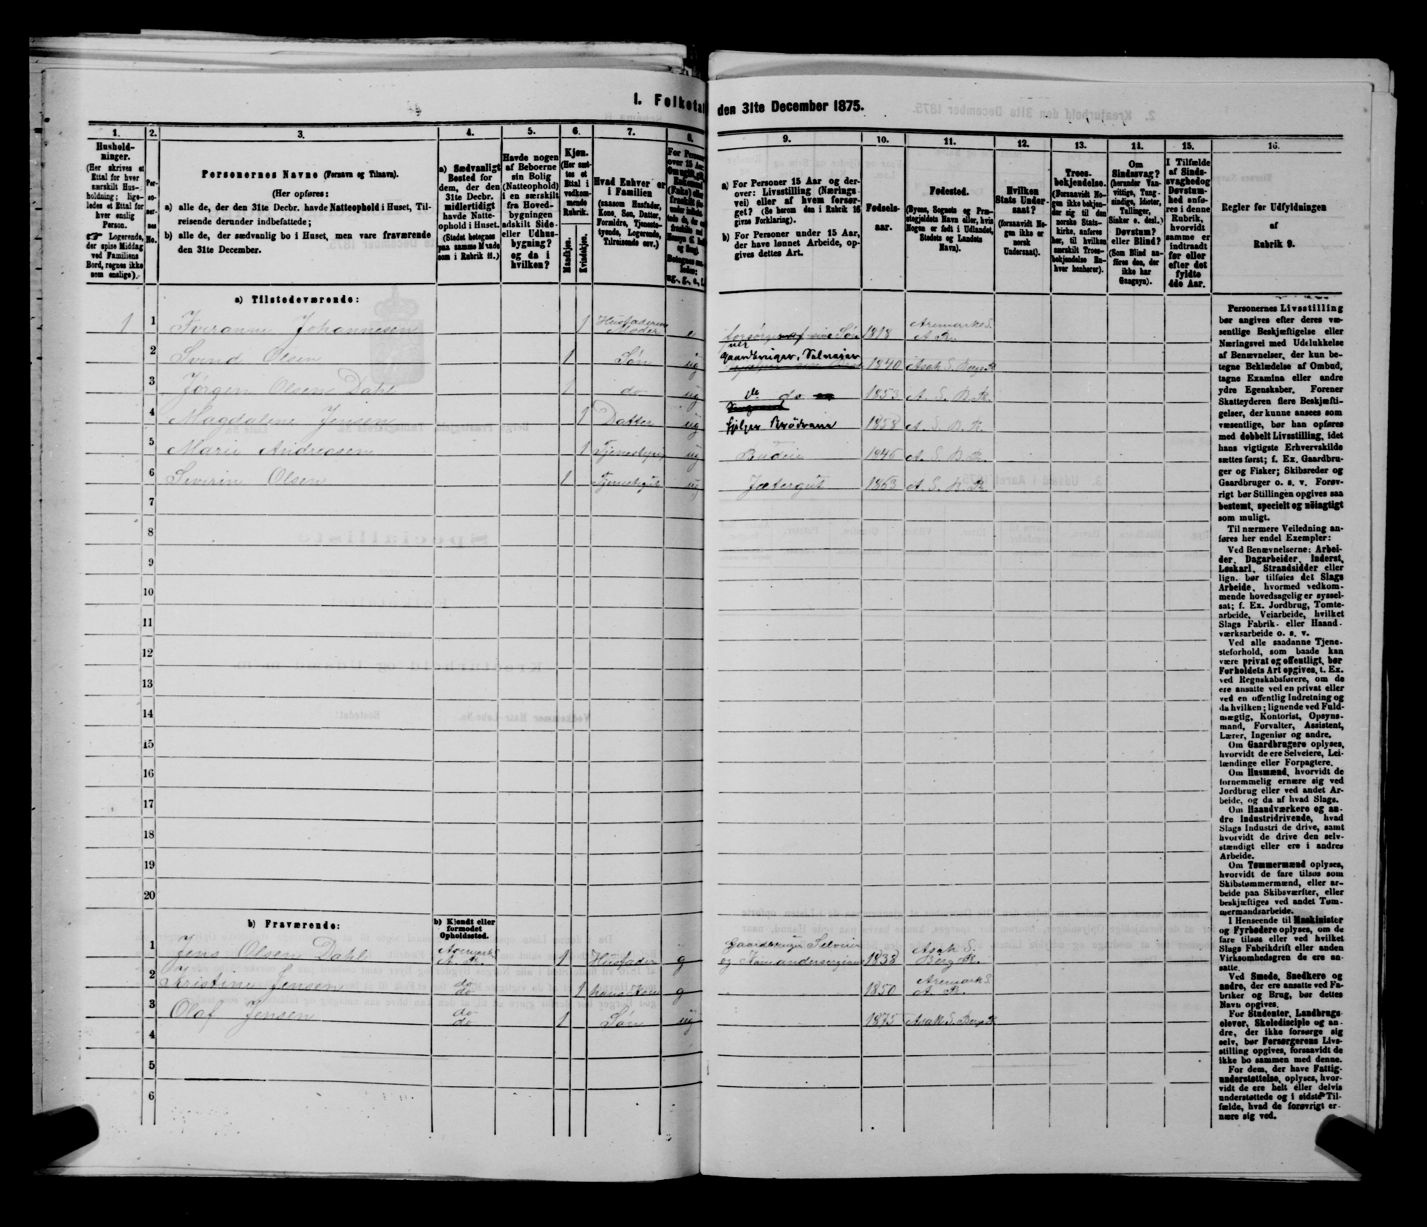 I. Folketal den 31te December 1875.
1. 2. 3. 4. 5. 6. 7. 8. 9. 10. 11. 12. 13. 14. 15. 16.
Hushold-
ninger.
(Her skrives et
Ettal for hver
særskilt Hus-
holdning; lige-
ledes et Ettal for
hver enslig
Person.
☞ Logerende,
der spise Middag
ved Familiens
Bord, regnes ikke
som enslige).
Per-
so-
ner-
nes
No.
Personernes Navne (Fornavn og Tilnavn).
(Her opføres:
a) alle de, der den 31te Decbr. havde Natteophold i Huset, Til-
reisende derunder indbefattede;
b) alle de, der sædvanlig bo i Huset, men vare fraværende
den 31te December.
a) Sædvanligt
Bosted for
dem, der den
31te Decbr.
midlertidigt
havde Natte-
ophold i Huset.
(Stedet betegnes
paa samme Maade
som i Rubrik 11.)
Havde nogen
af Beboerne
sin Bolig
(Natteophold)
i en særskilt
fra Hoved-
bygningen
adskilt Side-
eller Udhus-
bygning?
og da i
hvilken?
Kjøn.
(Her sæt-
tes et
Ettal i
vedkom-
mende
Rubrik.
Mandkjøn.
Kvindekjøn.
Hvad Enhver er
i Familien
(saasom Husfader,
Kone, Søn, Datter,
Forældre, Tjeneste-
tyende, Logerende,
Tilreisende osv.)
For Personer
over 15 Aar
a) For Personer 15 Aar og der-
over: Livsstilling (Nærings-
vei) eller af hvem forsør-
get? (Se herom den i Rubrik 16
givne Forklaring).
b) For Personer under 15 Aar,
der have lønnet Arbeide, op-
gives dettes Art.
Fødsels-
aar.
Fødested.
(Byens, Sognets og Præ-
stegjeldets Navn eller, hvis
Nogen er født i Udlandet,
Stedets og Landets
Navn).
Hvilken
Stats Under-
saat?
(forsaavidt No-
gen ikke er
norsk
Undersaat).
Troes-
bekjendelse.
(forsaavidt No-
gen ikke bekjen-
der sig til den
norske Stats-
kirke, anføres
her, til hvilken
særskilt Troes-
bekjendelse En-
hver henhører).
Om
Sindssvag?
(herunder Van-
vittige, Tung-
sindige, Idioter,
Tullinger,
Sinker o. desl.)
Døvstum?
eller Blind?
(Som Blind an-
føres den, der
ikke har
Gangsyn).
I Tilfælde
af Sinds-
svaghed og
Døvstum-
hed anfø-
res i denne
Rubrik,
hvorvidt
samme er
indtraadt
før eller
efter det
fyldte
4de Aar.
Regler for Udfyldningen
af
Rubrik 9.
a) Tilstedeværende:
1 1 Iveranne Johannesen 1 Husfaderens Moder e forsørges af sin Søn 1818 Aremarks S. A. Pr.
2 Svend Olsen 1 Søn ug Gaardbruger, Selveier 1840 Asak S. Berg Pr.
3 Jørgen Olsen Dahl 1 do ug do do 1853 A. S. B. Pr.
4 Magdalene Jensen 1 Datter ug hjelper Brødrene 1858 A. S. B. Pr.
5 Marie Andreasen 1 Tjenestepige ug Budeie 1846 A. S. B. Pr.
6 Severin Olsen 1 Tjenestegut ug Jætergut 1863 A. S. B. Pr.
7
8
9
10
11
12
13
14
15
16
17
18
19
20
b) Fraværende:
b) Kjendt eller
formodet
Opholdssted.
1 Jens Olsen Dahl Aremarks A. Pr. 1 Husfader g Gaardbruger Selveier og Kommandersergeant 1838 Asak S. Berg Pr.
2 Kristine Jensen do do 1 hans Kone g 1850 Aremark S. A. Pr.
3 Olaf Jensen do do 1 Søn ug 1875 Asak S. Berg Pr.
4
5
6
Personernes Livsstilling
bør angives efter deres væ-
sentlige Beskjæftigelse eller
Næringsvei med Udelukkelse
af Benævnelser, der kun be-
tegne Beklædelse af Ombud,
tagne Examina eller andre
ydre Egenskaber. Forener
Skatteyderen flere Beskjæfti-
gelser, der kunne ansees som
væsentlige, bør han opføres
med dobbelt Livsstilling, idet
hans vigtigste Erhvervskilde
sættes først; f. Ex. Gaardbru-
ger og Fisker; Skibsreder og
Gaardbruger o. s. v. Forøv-
rigt bør Stillingen opgives saa
bestemt, specielt og nöiagtigt
som muligt.
Til nærmere Veiledning an-
føres her endel Exempler:
Ved Benævnelserne: Arbei-
der, Dagarbeider, Inderst,
Løskarl, Strandsidder eller
lign. bør tilføies det Slags
Arbeide, hvormed vedkom-
mende hovedsagelig er syssel-
sat; f. Ex. Jordbrug, Tomte-
arbeide, Veiarbeide, hvilket
Slags Fabrik- eller Haand-
værksarbeide o. s. v.
Ved alle saadanne Tjene-
steforhold, som baade kan
være privat og offentligt, bør
Forholdets Art opgives, t. Ex.
ved Regnskabsførere, om de
ere ansatte ved en privat eller
ved en offentlig Indretning og
da hvilken; lignende ved Fuld-
mægtig, Kontorist, Opsyns-
mand, Forvalter, Assistent,
Lærer, Ingeniør og andre.
Om Gaardbrugere oplyses,
hvorvidt de ere Selveiere, Lei-
lændinge eller Forpagtere.
Om Husmænd, hvorvidt de
fornemmelig ernære sig ved
Jordbrug eller ved andet Ar-
beide, og da af hvad Slags.
Om Haandværkere og an-
dre Industridrivende, hvad
Slags Industri de drive, samt
hvorvidt de drive den selv-
stændigt eller ere i andres
Arbeide.
Om Tømmermænd oplyses,
hvorvidt de fare tilsøs som
Skibstømmermænd, eller ar-
beide paa Skibsværfter, eller
beskjæftiges ved andet Tøm-
mermandsarbeide.
I Henseende til Maskinister
og Fyrbødere oplyses, om de
fare tilsøs eller ved hvilket
Slags Fabrikdrift eller anden
Virksomhedsgren de ere an-
satte.
Ved Smede, Snedkere og
andre, der ere ansatte ved Fa-
briker og Brug, bør dettes
Navn opgives.
For Studenter, Landbrugs-
elever, Skoledisciple og an-
dre, der ikke forsørge sig
selv, bør Forsørgerens Livs-
stilling opgives, forsaavidt de
ikke bo sammen med denne.
For dem, der have Fattig-
understøttelse, oplyses, hvor-
vidt de ere helt eller delvis
understøttede og i sidste Til-
fælde, hvad de forøvrigt er-
nære sig ved.